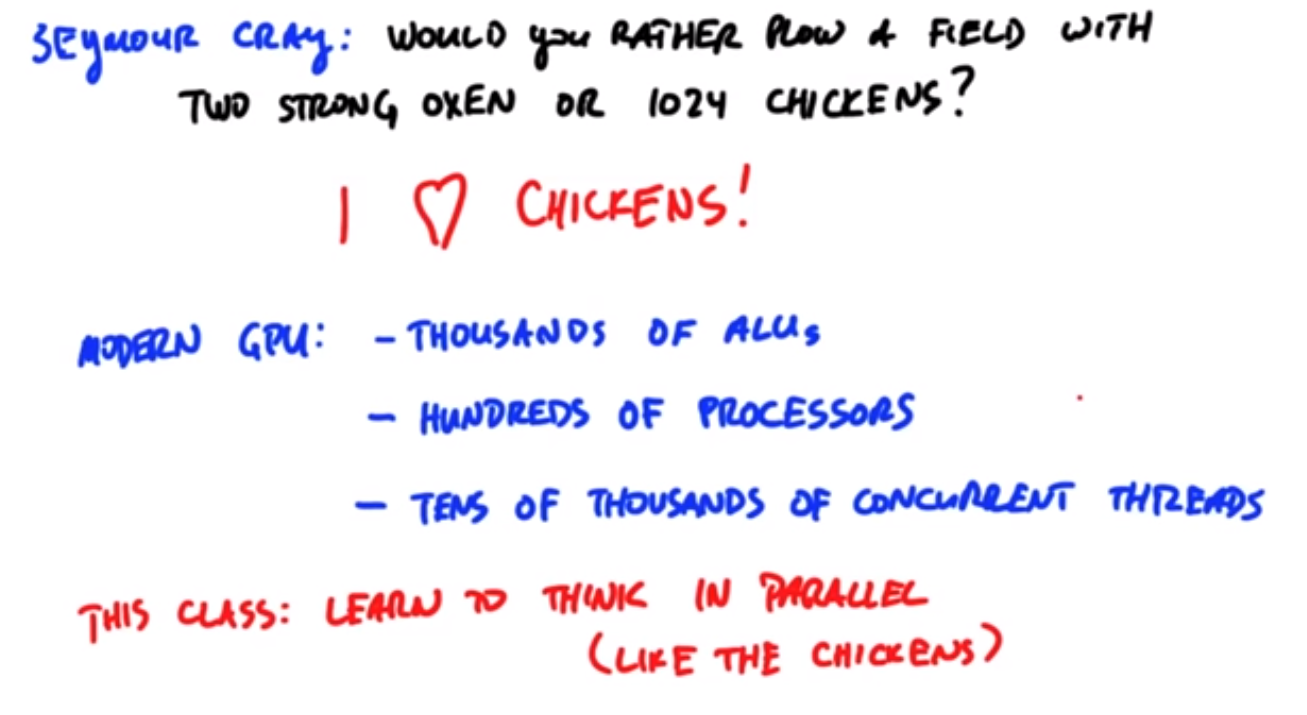 SEYMOUR CRAY: WOULD you RATHER PLOW A FIELD WITH
TWO STRONG OXEN OR 1024 CHICKENS?
I ♡ CHICKENS!
MODERN GPU: - THOUSANDS OF ALUs
- HUNDREDS OF PROCESSORS
- TENS OF THOUSANDS OF CONCURRENT THREADS
THIS CLASS: LEARN TO THINK IN PARALLEL
(LIKE THE CHICKENS)